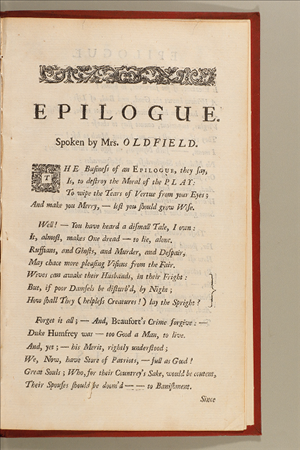 EPILOGUE.
Spoken by Mrs. OLDFIELD.
THE Business of an EPILOGUE, they say,
Is, to destroy the Moral of the PLAY:
To wipe the Tears of Vertue from your Eyes;
And make you Merry, — lest you should grow Wise.
Well! — You have heard a dismall Tale, I own:
It, almost, makes One dread — to lie, alone.
Ruffians, and Ghosts, and Murder, and Despair,
May chace more pleasing Visions from the Fair.
Wives can awake their Husbands, in their Fright:
But, if poor Damsels be disturb'd, by Night;
How shall They (helpless Creatures!) lay the Spright?
Forget it all; — And, Beaufort's Crime forgive: —
Duke Humfrey was — too Good a Man, to live.
And, yet; — his Merit, rightly understood;
We, Now, have Store of Patriots, — just as Good!
Great Souls; Who, for their Countrey's Sake, would be content,
Their Spouses should be doom'd — — to Banishment.
Since